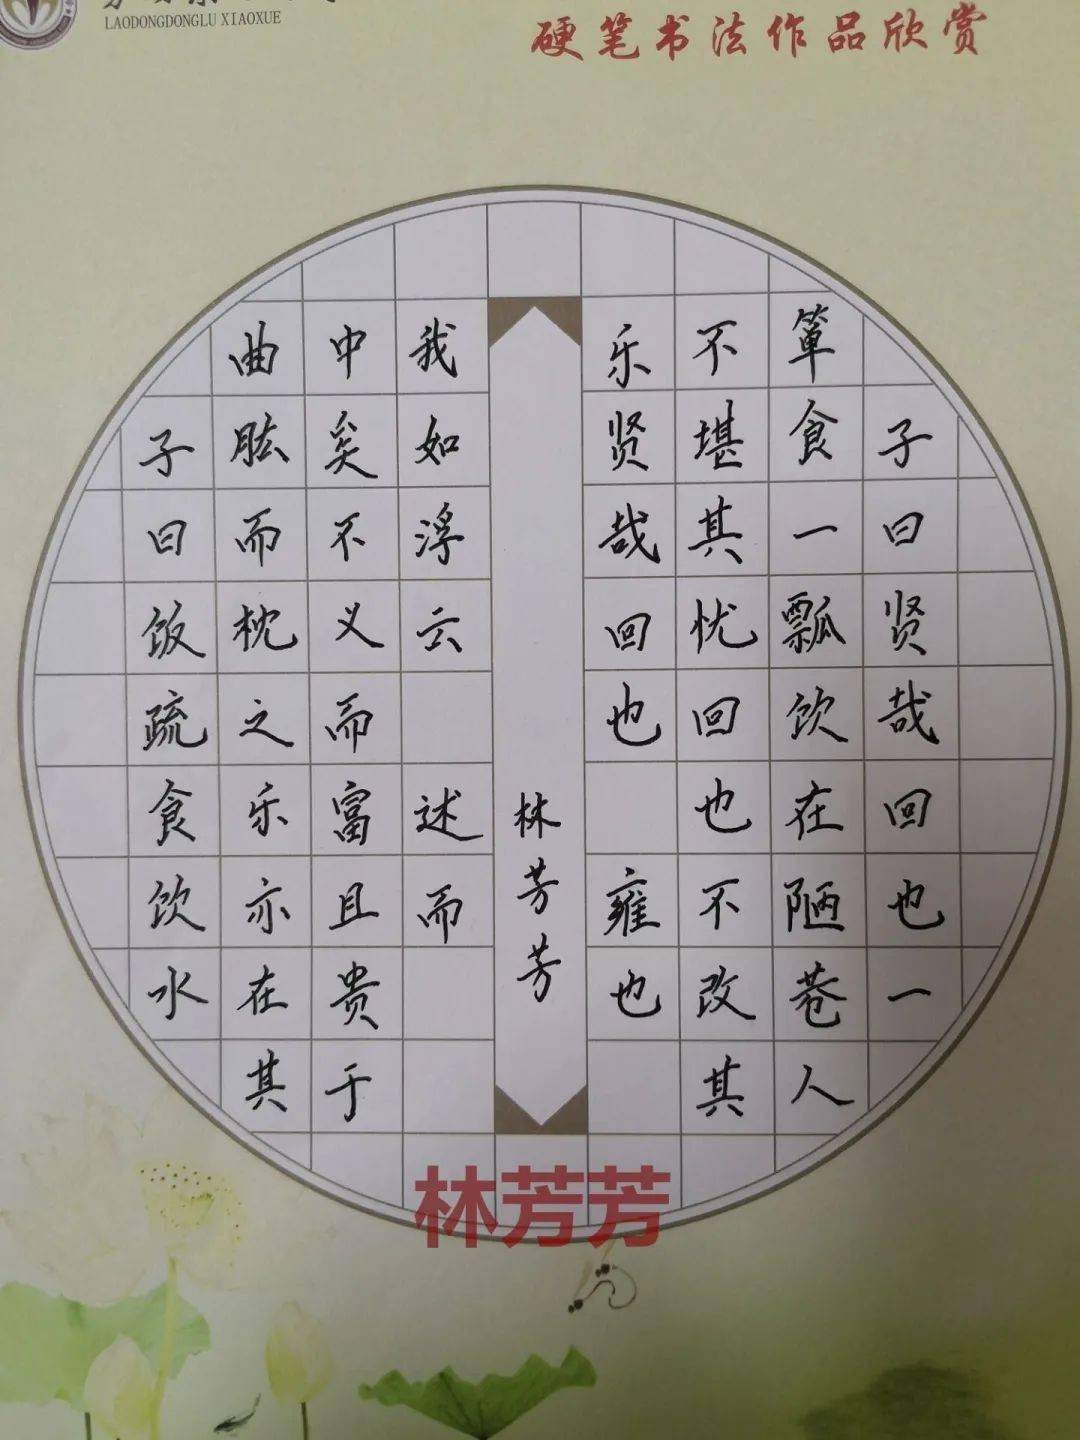 LAODONGDONGLU XIAOXUE
硬笔书法作品欣赏
子曰贤哉回也一
箪食一瓢饮在陋巷人
不堪其忧回也不改其
乐贤哉回也 雍也
子曰饭疏食饮水
曲肱而枕之乐亦在其
中矣不义而富且贵于
我如浮云 述而
林芳芳
林芳芳